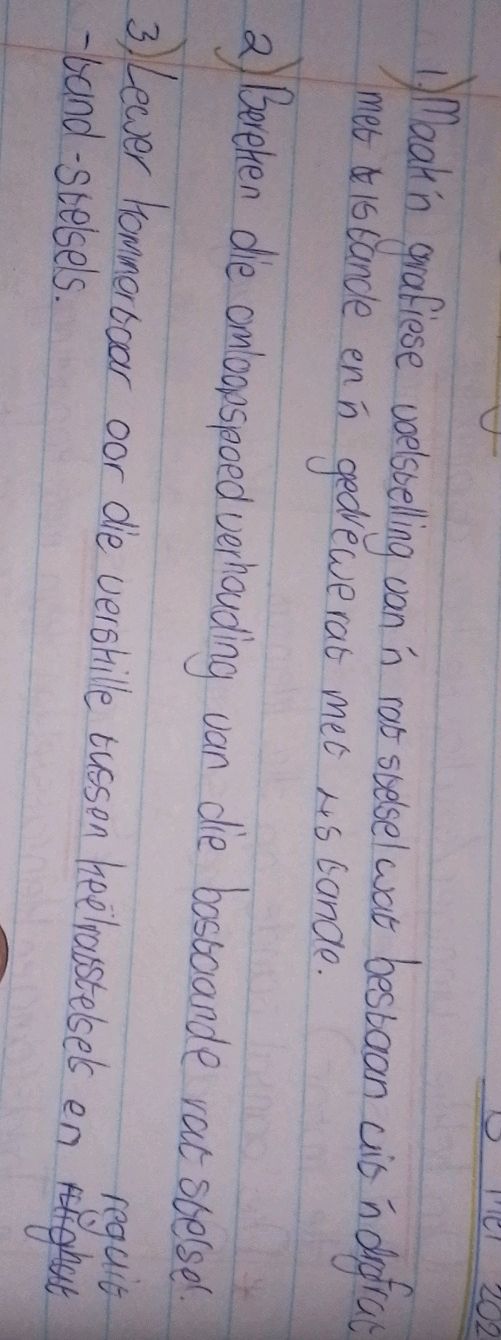 1.) Maak 'n grafiese voelstelling van 'n rat stelsel wat bestaan uit 'n dryfrat
met 15 tande en 'n gedrewe rat met 45 tande.
2) Bereken die omloopspoedverhouding van die bostaande rat stelsel.
3.) Lewer kommentaar oor die verskille tussen keëlratstelsels en reguit
-tand-stelsels.